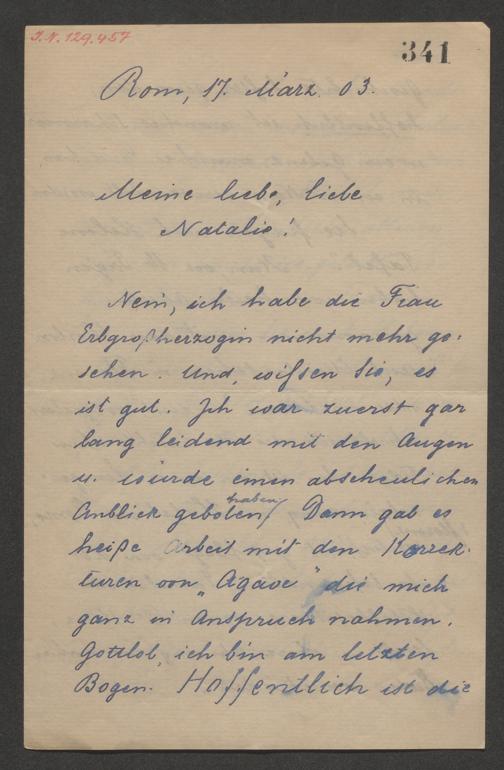 I.N. 129.457
341
Rom, 17. März. 03.
Meine liebe, liebe
Natalie!
Nein, ich habe die Frau
Erbgroßherzogin nicht mehr ge-
sehen. Und, wissen Sie, es
ist gut. Ich war zuerst gar
lang leidend mit den Augen
u. würde einen abscheulichen
haben
Anblick geboten. Dann gab es
heiße Arbeit mit den Korrek-
turen von „Agave" die mich
ganz in Anspruch nahmen.
Gottlob, ich bin am letzten
Bogen. Hoffentlich ist die